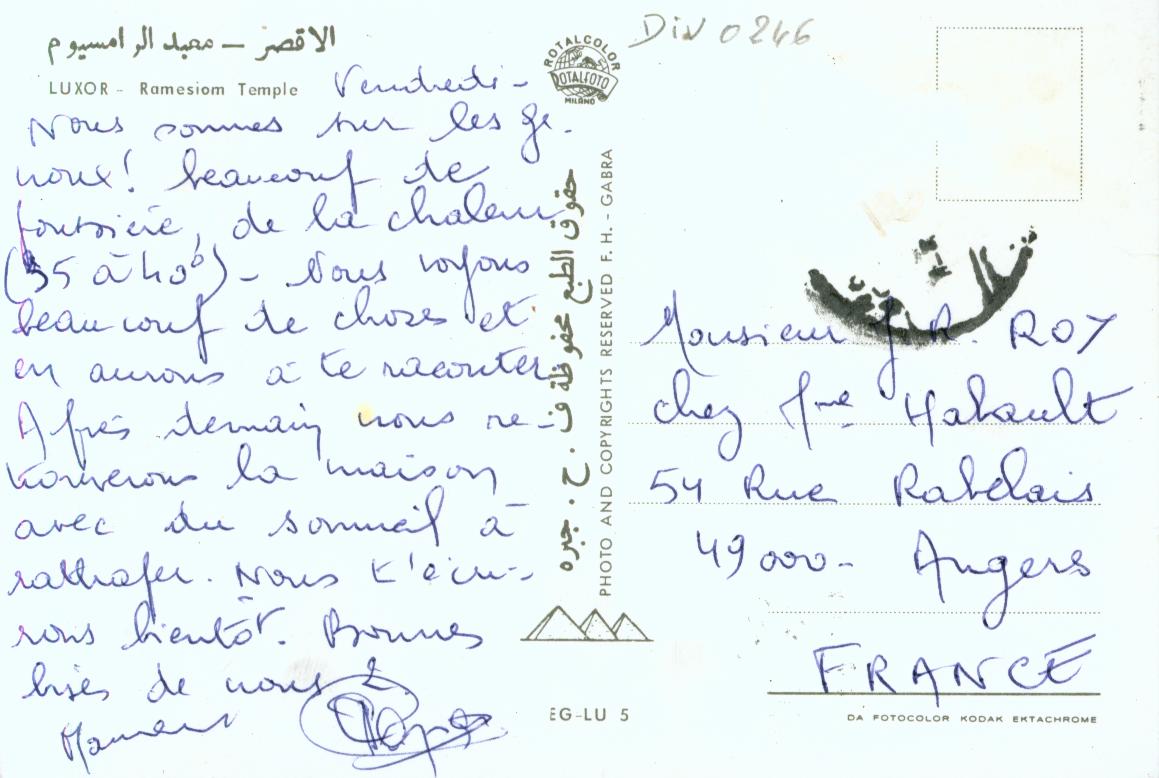 الاقصر – معبد الرامسيوم
LUXOR - Ramesiom Temple
Vendredi -
Nous sommes sur les ge-
noux! beaucoup de
poussière, de la chaleur
(35 à 40°) - Nous voyons
beaucoup de choses et
en aurons à te raconter.
Après demain nous re-
trouverons la maison
avec du sommeil à
rattraper. Nous t'écri-
rons bientôt. Bonnes
bises de nous 2
Maman
Papa
ROTALCOLOR
ROTALFOTO
MILANO
حقوق الطبع محفوظة ف . ح . جبره
PHOTO AND COPYRIGHTS RESERVED F. H. - GABRA
EG-LU 5
Div 0246
Monsieur J.R. ROY
chez Mme Habault
54 Rue Rabelais
49000 - Angers
FRANCE
DA FOTOCOLOR KODAK EKTACHROME